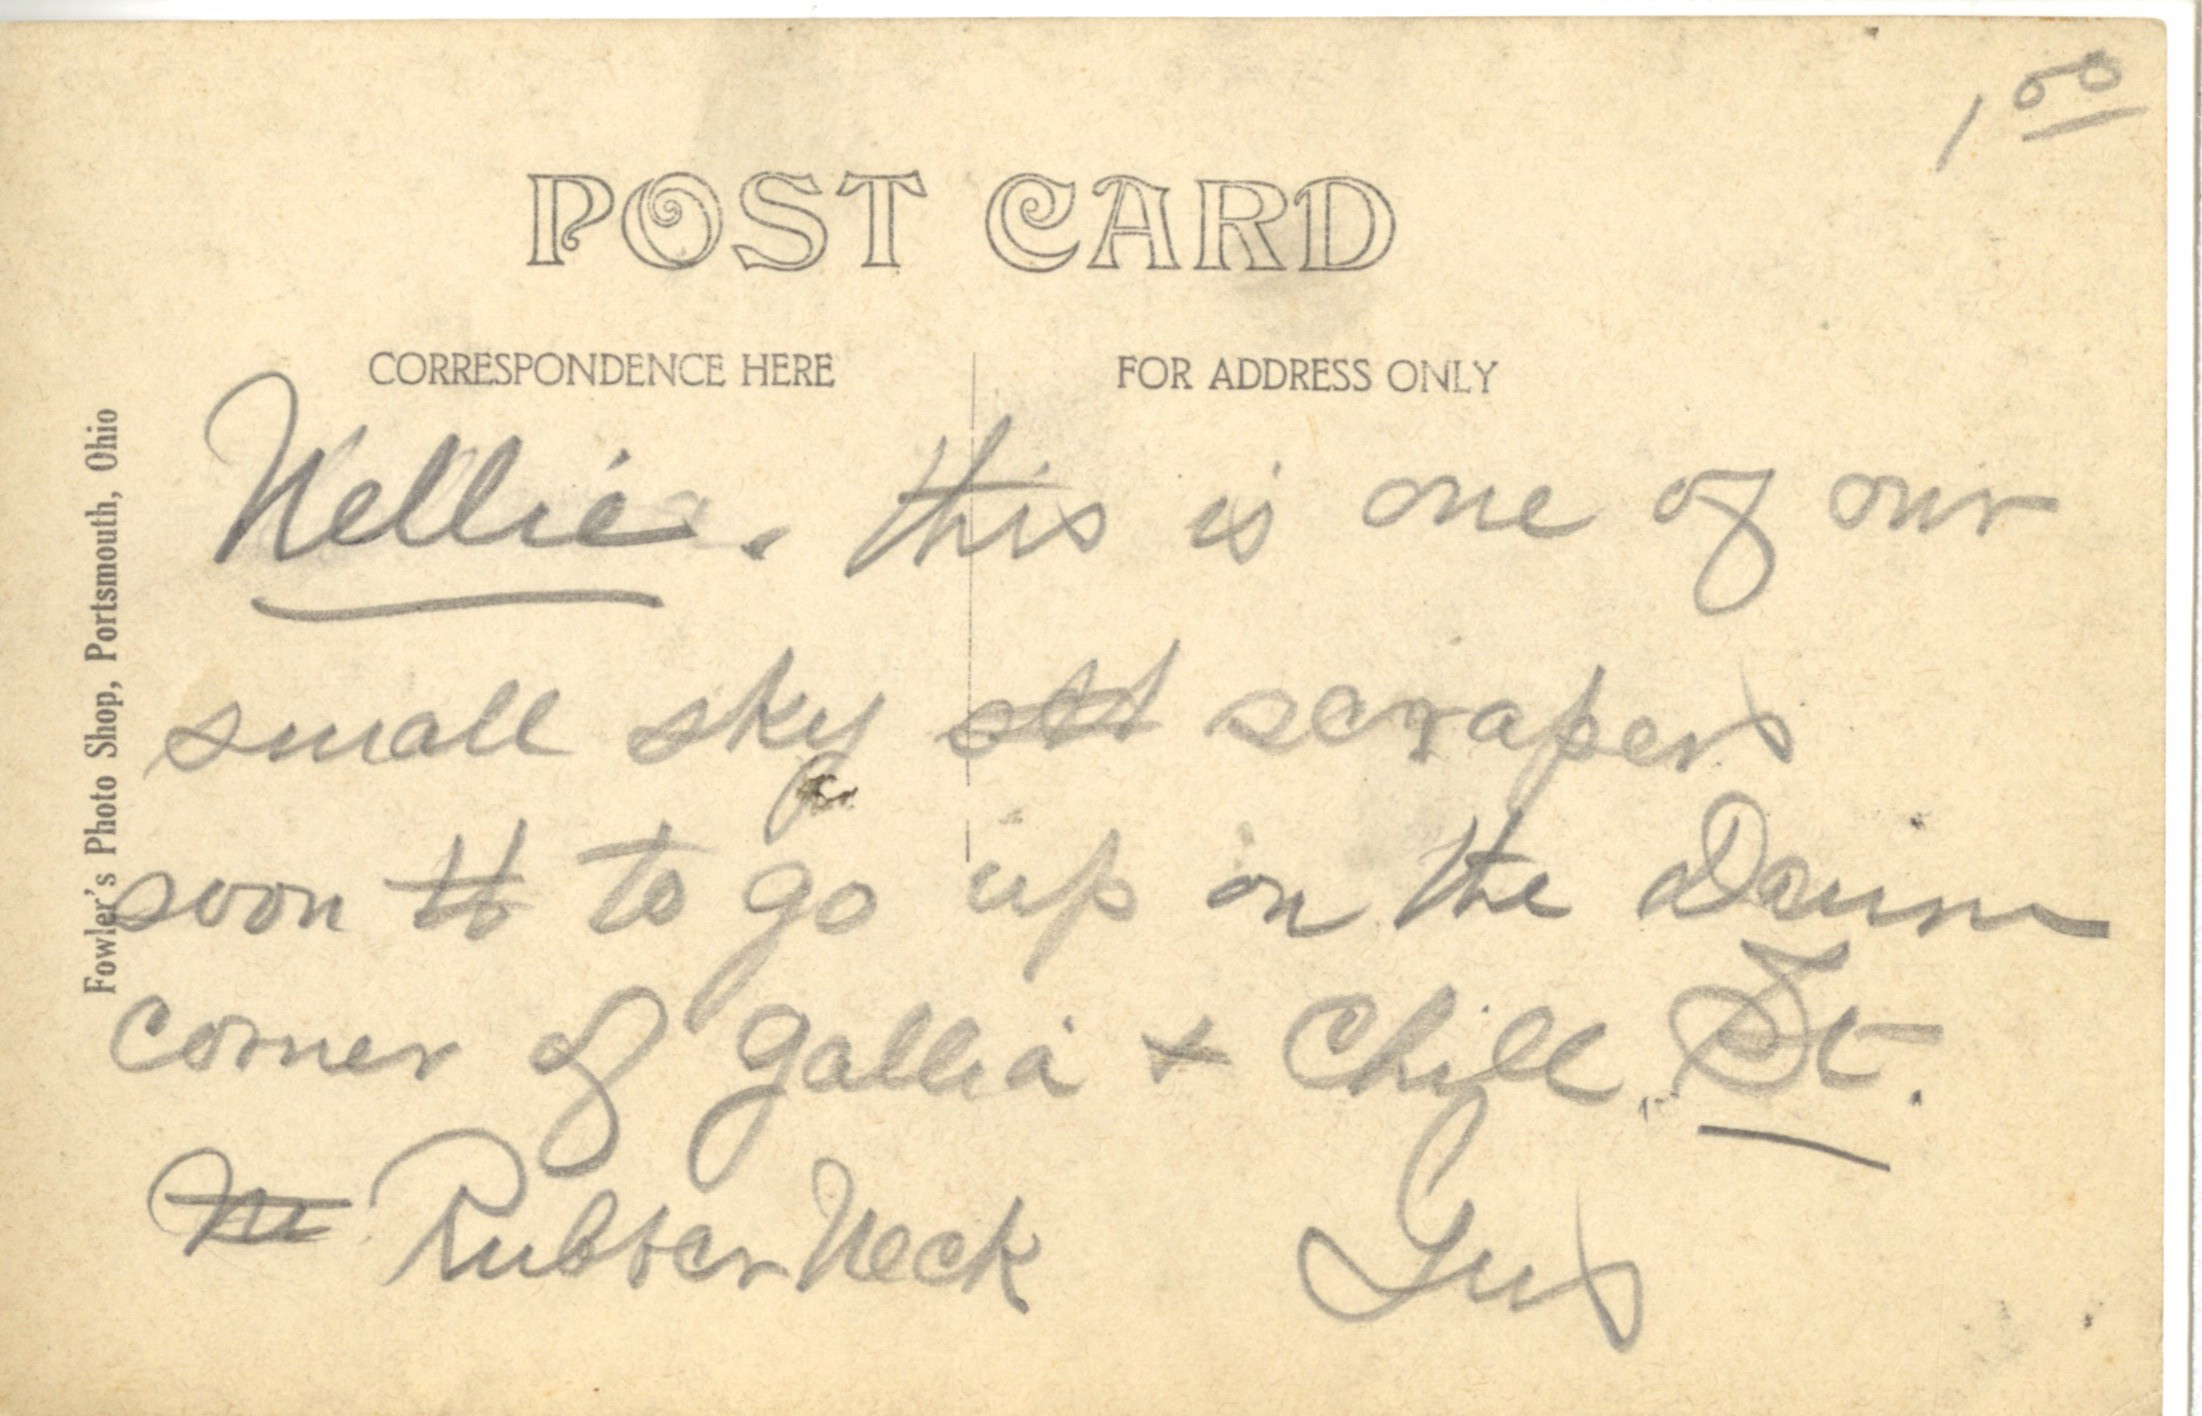 1 00
POST CARD
CORRESPONDENCE HERE
FOR ADDRESS ONLY
Fowler's Photo Shop, Portsmouth, Ohio
Nellie. this is one of our
small sky scrapers
soon to go up on the
corner of Gallia + Chill. St.
Rubber Neck Gus